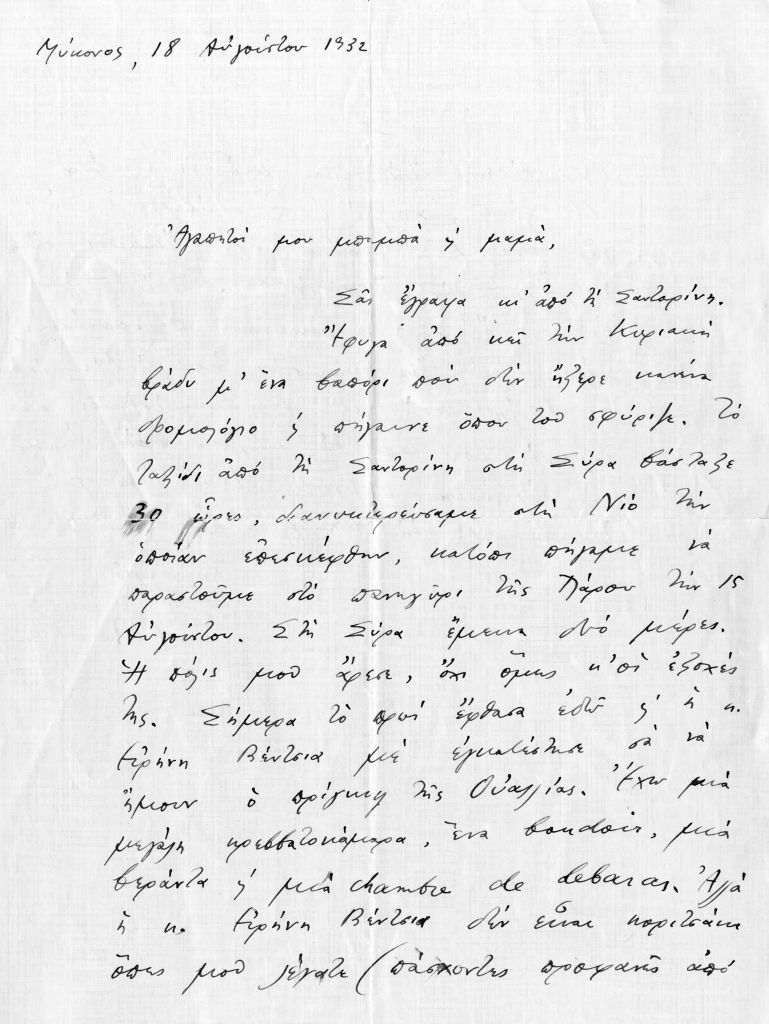 Μύκονος, 18 Αὐγούστου 1932
Ἀγαπητοί μου μπαμπᾶ ϗ μαμά,
Σᾶς ἔγραψα κι' ἀπό τή Σαντορίνη.
Ἔφυγα ἀπό κεῖ τήν Κυριακή
βράδυ μ' ἕνα βαπόρι πού δέν ἤξερε κανένα
δρομολόγιο ϗ πήγαινε ὅπου τοῦ σφύριζε. Τό
ταξίδι ἀπό τή Σαντορίνη στή Σύρα βάσταξε
30 ὧρες, διανυκτερεύσαμε στή Νιό τήν
ὁποίαν ἐπεσκέφθην, κατόπι πήγαμε νά
παραστοῦμε στό πανηγύρι τῆς Πάρου τήν 15
Αὐγούστου. Στή Σύρα ἔμεινα δυό μέρες.
Ἡ πόλις μοῦ ἄρεσε, ὄχι ὅμως κ' οἱ ἐξοχές
της. Σήμερα τό πρωί ἔφθασα ἐδῶ ϗ ἡ κ.
Εἰρήνη Βέντσια μέ ἐγκατέστησε σά νά
ἤμουν ὁ πρίγκηψ τῆς Οὐαλλίας. Ἔχω μιά
μεγάλη κρεββατοκάμαρα, ἕνα boudoir, μιά
βεράντα ϗ μιά chambre de debaras. Ἀλλά
ἡ κ. Εἰρήνη Βέντσια δέν εἶναι κοριτσάκι
ὅπως μοῦ λέγατε (πάσχοντες προφανῶς ἀπό